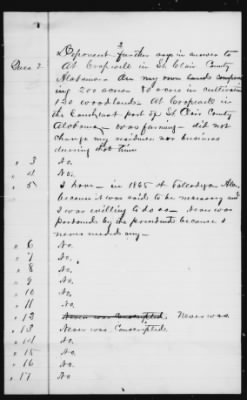 2
Deponent further says in answer to
Ques 2. At Cropwell in St. Clair County
Alabama on my own lands
ing 200 acres 80 acres in cultivation
120 woodlands At Cropwell in
the Southeast part of St Clair County
Alabama, was farming - did not
change my residence nor business
during that time
" 3 No.
" 4 No.
" 5 I have - in 1865 at Talladega Ala
because it was said to be necessary and
I was willing to do so - Never was
pardoned by the president because I
never needed any -
" 6 No.
" 7 No.
" 8 No.
" 9 No.
" 10 No.
" 11 No.
" 12 Never was Conscripted. Never was.
" 13 Never was Conscripted.
" 14 No.
" 15 No.
" 16 No.
" 17 No